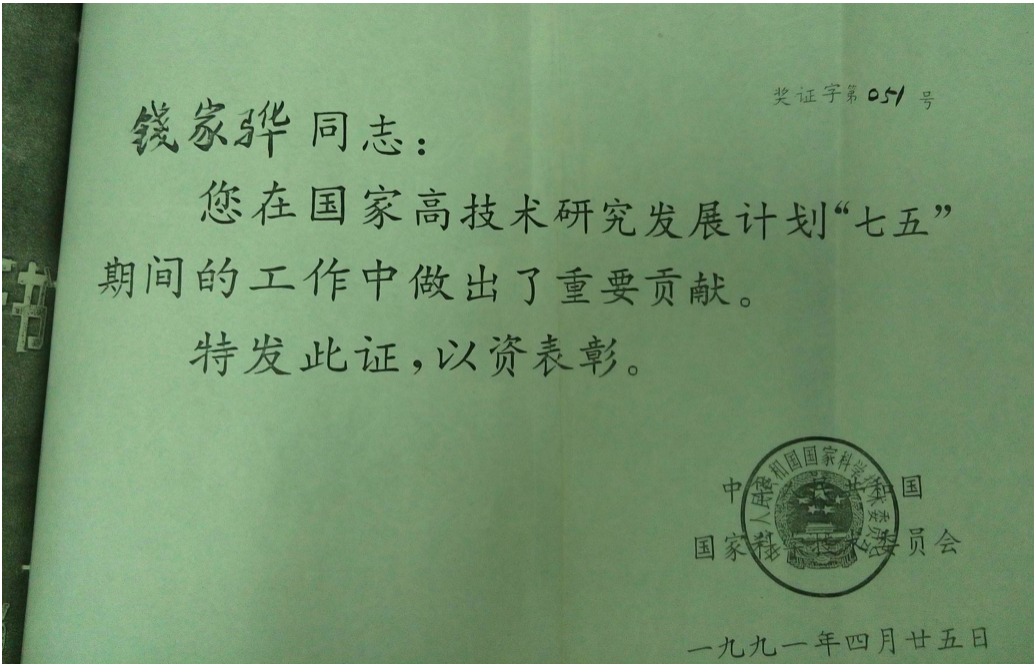 奖证字第051号
錢家骅同志：
您在国家高技术研究发展计划“七五”
期间的工作中做出了重要贡献。
特发此证，以资表彰。
中华人民共和国
国家科学技术委员会
一九九一年四月廿五日